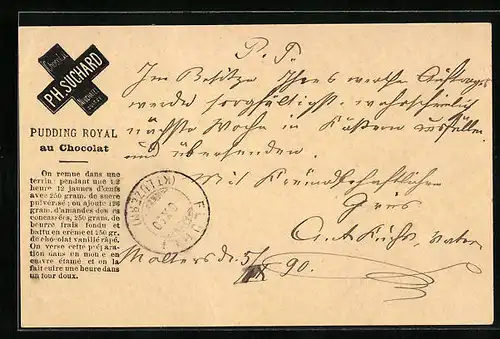 Chocolat
PH. SUCHARD
Neuchâtel
SUISSE
PUDDING ROYAL
au Chocolat
On remue dans une
terrine pendant une 1/2
heure 12 jaunes d'œufs
avec 250 gram. de sucre
pulvérisé; on ajoute 126
gram. d'amandes douces
concassées, 250 gram. de
beurre frais fondu et
battu en crème et 150 gr.
de chocolat vanillé râpé.
On verse cette prépara-
tion dans un moule en
cuivre étamé et on la
fait cuire une heure dans
un four doux.
P. T.
Im Besitze Ihres werthen Auftrages
werde sorgfältigst, wahrscheinlich
nächste Woche in Kästern ausfüllen
und übersenden.
Mit Freundschaftlichem
Gruss
Malters d. 5/IX 90.